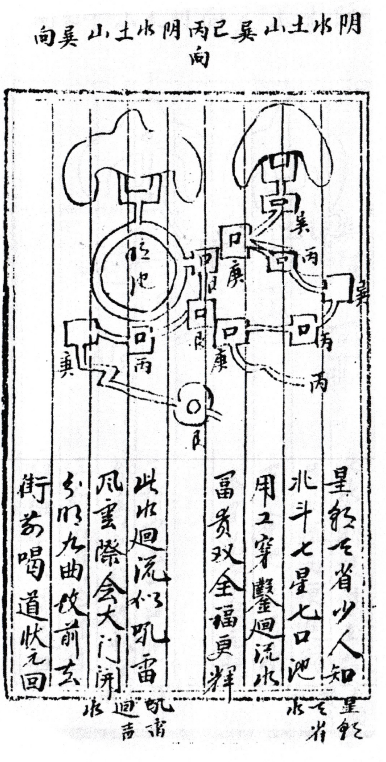 阴水土山巽巳丙向
阴水土山巽向
巽
丙
庚
巽
丙
庚
丙
池
丙
巽
星朝天省少人知
北斗七星七口池
用工穿鑿廻流水
冨贵双全福更輝
此水廻流似吼雷
風雲際会大门開
分明九曲 前去
街前喝道状元回
星朝天省水
廻声水